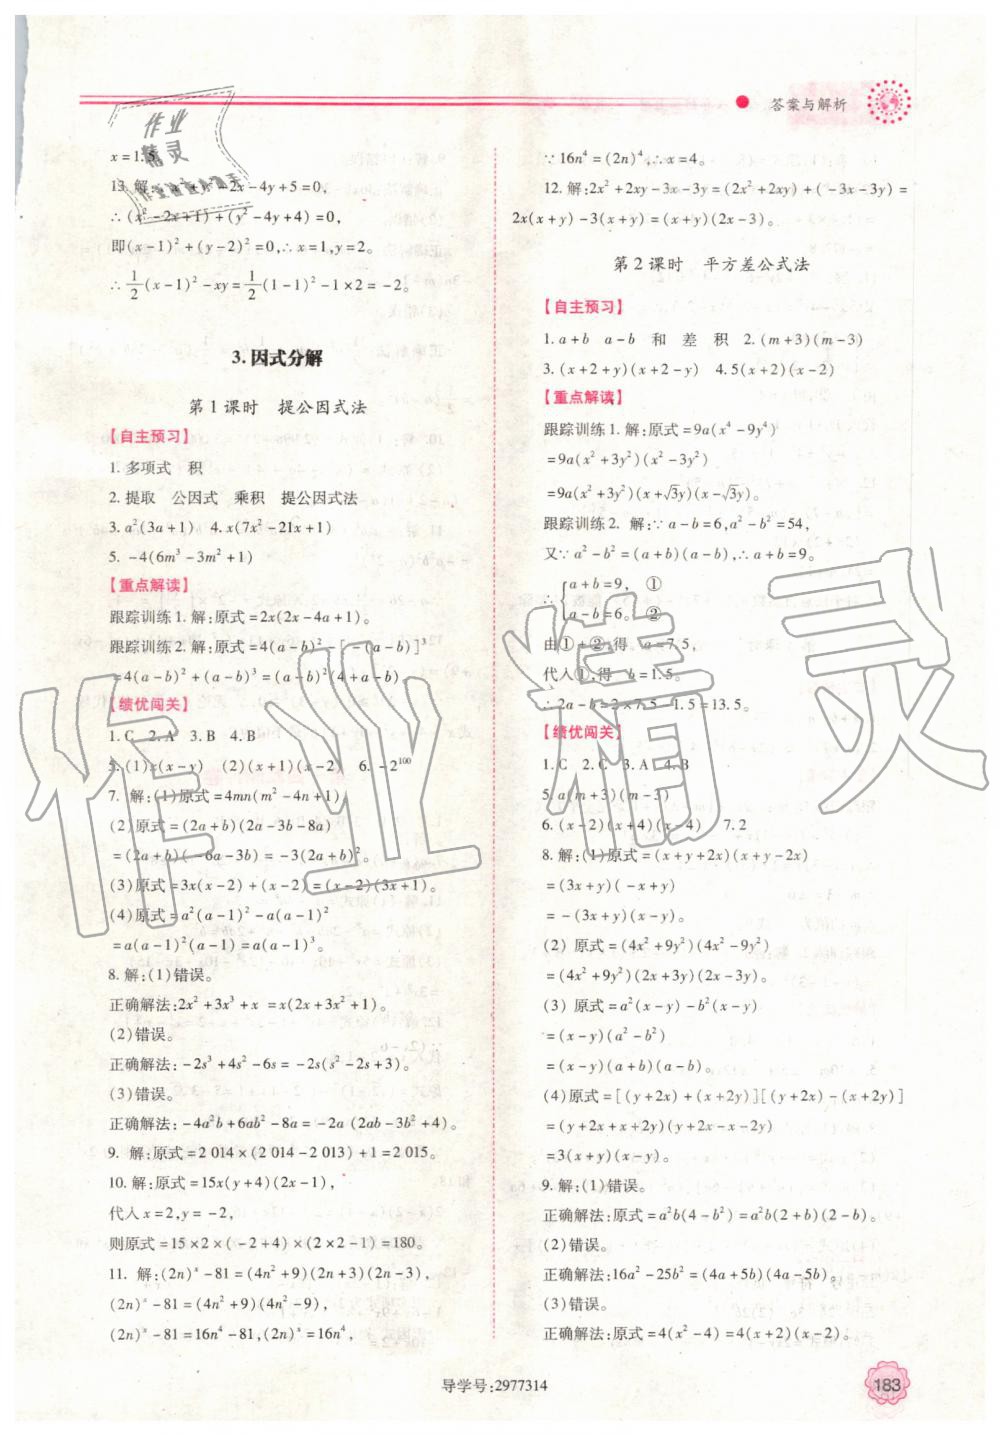 答案与解析
作业
精灵
x=1.5
13. 解:x²+y²-2x-4y+5=0,
∴(x²-2x+1)+(y²-4y+4)=0,
即(x-1)²+(y-2)²=0,∴x=1,y=2。
∴1/2(x-1)²-xy=1/2(1-1)²-1×2=-2。
3.因式分解
第1课时 提公因式法
【自主预习】
1. 多项式 积
2. 提取 公因式 乘积 提公因式法
3. a²(3a+1) 4. x(7x²-21x+1)
5. -4(6m³-3m²+1)
【重点解读】
跟踪训练1. 解:原式=2x(2x-4a+1)。
跟踪训练2. 解:原式=4(a-b)²-[-(a-b)]³
=4(a-b)²+(a-b)³=(a-b)²(4+a-b)。
【绩优闯关】
1. C 2. A 3. B 4. B
5. (1)x(x-y) (2)(x+1)(x-2) 6. -2¹⁰⁰
7. 解:(1)原式=4mn(m²-4n+1)
(2)原式=(2a+b)(2a-3b-8a)
=(2a+b)(-6a-3b)=-3(2a+b)²。
(3)原式=3x(x-2)+(x-2)=(x-2)(3x+1)。
(4)原式=a²(a-1)²-a(a-1)²
=a(a-1)²(a-1)=a(a-1)³。
8. 解:(1)错误。
正确解法:2x²+3x³+x =x(2x+3x²+1)。
(2)错误。
正确解法:-2s³+4s²-6s=-2s(s²-2s+3)。
(3)错误。
正确解法:-4a²b+6ab²-8a=-2a(2ab-3b²+4)。
9. 解:原式=2 014×(2 014-2 013)+1=2 015。
10. 解:原式=15x(y+4)(2x-1),
代入x=2,y=-2,
则原式=15×2×(-2+4)×(2×2-1)=180。
11. 解:(2n)ˣ-81=(4n²+9)(2n+3)(2n-3),
(2n)ˣ-81=(4n²+9)(4n²-9),
(2n)ˣ-81=16n⁴-81,(2n)ˣ=16n⁴,
∵16n⁴=(2n)⁴,∴x=4。
12. 解:2x²+2xy-3x-3y=(2x²+2xy)+(-3x-3y)=
2x(x+y)-3(x+y)=(x+y)(2x-3)。
第2课时 平方差公式法
【自主预习】
1. a+b a-b 和 差 积 2. (m+3)(m-3)
3. (x+2+y)(x+2-y) 4. 5(x+2)(x-2)
【重点解读】
跟踪训练1. 解:原式=9a(x⁴-9y⁴)
=9a(x²+3y²)(x²-3y²)
=9a(x²+3y²)(x+√3y)(x-√3y)。
跟踪训练2. 解:∵a-b=6,a²-b²=54,
又∵a²-b²=(a+b)(a-b),∴a+b=9。
∴{a+b=9, ①
a-b=6。 ②
由①+②,得 a=7.5,
代入①,得 b=1.5。
∴2a-b=2×7.5-1.5=13.5。
【绩优闯关】
1. C 2. C 3. A 4. B
5. a(m+3)(m-3)
6. (x-2)(x+4)(x-4) 7. 2
8. 解:(1)原式=(x+y+2x)(x+y-2x)
=(3x+y)(-x+y)
=-(3x+y)(x-y)。
(2) 原式=(4x²+9y²)(4x²-9y²)
=(4x²+9y²)(2x+3y)(2x-3y)。
(3) 原式=a²(x-y)-b²(x-y)
=(x-y)(a²-b²)
=(x-y)(a+b)(a-b)。
(4)原式=[(y+2x)+(x+2y)][(y+2x)-(x+2y)]
=(y+2x+x+2y)(y+2x-x-2y)
=3(x+y)(x-y)。
9. 解:(1)错误。
正确解法:原式=a²b(4-b²)=a²b(2+b)(2-b)。
(2)错误。
正确解法:16a²-25b²=(4a+5b)(4a-5b)。
(3)错误。
正确解法:原式=4(x²-4)=4(x+2)(x-2)。
作业精灵
导学号:2977314
183